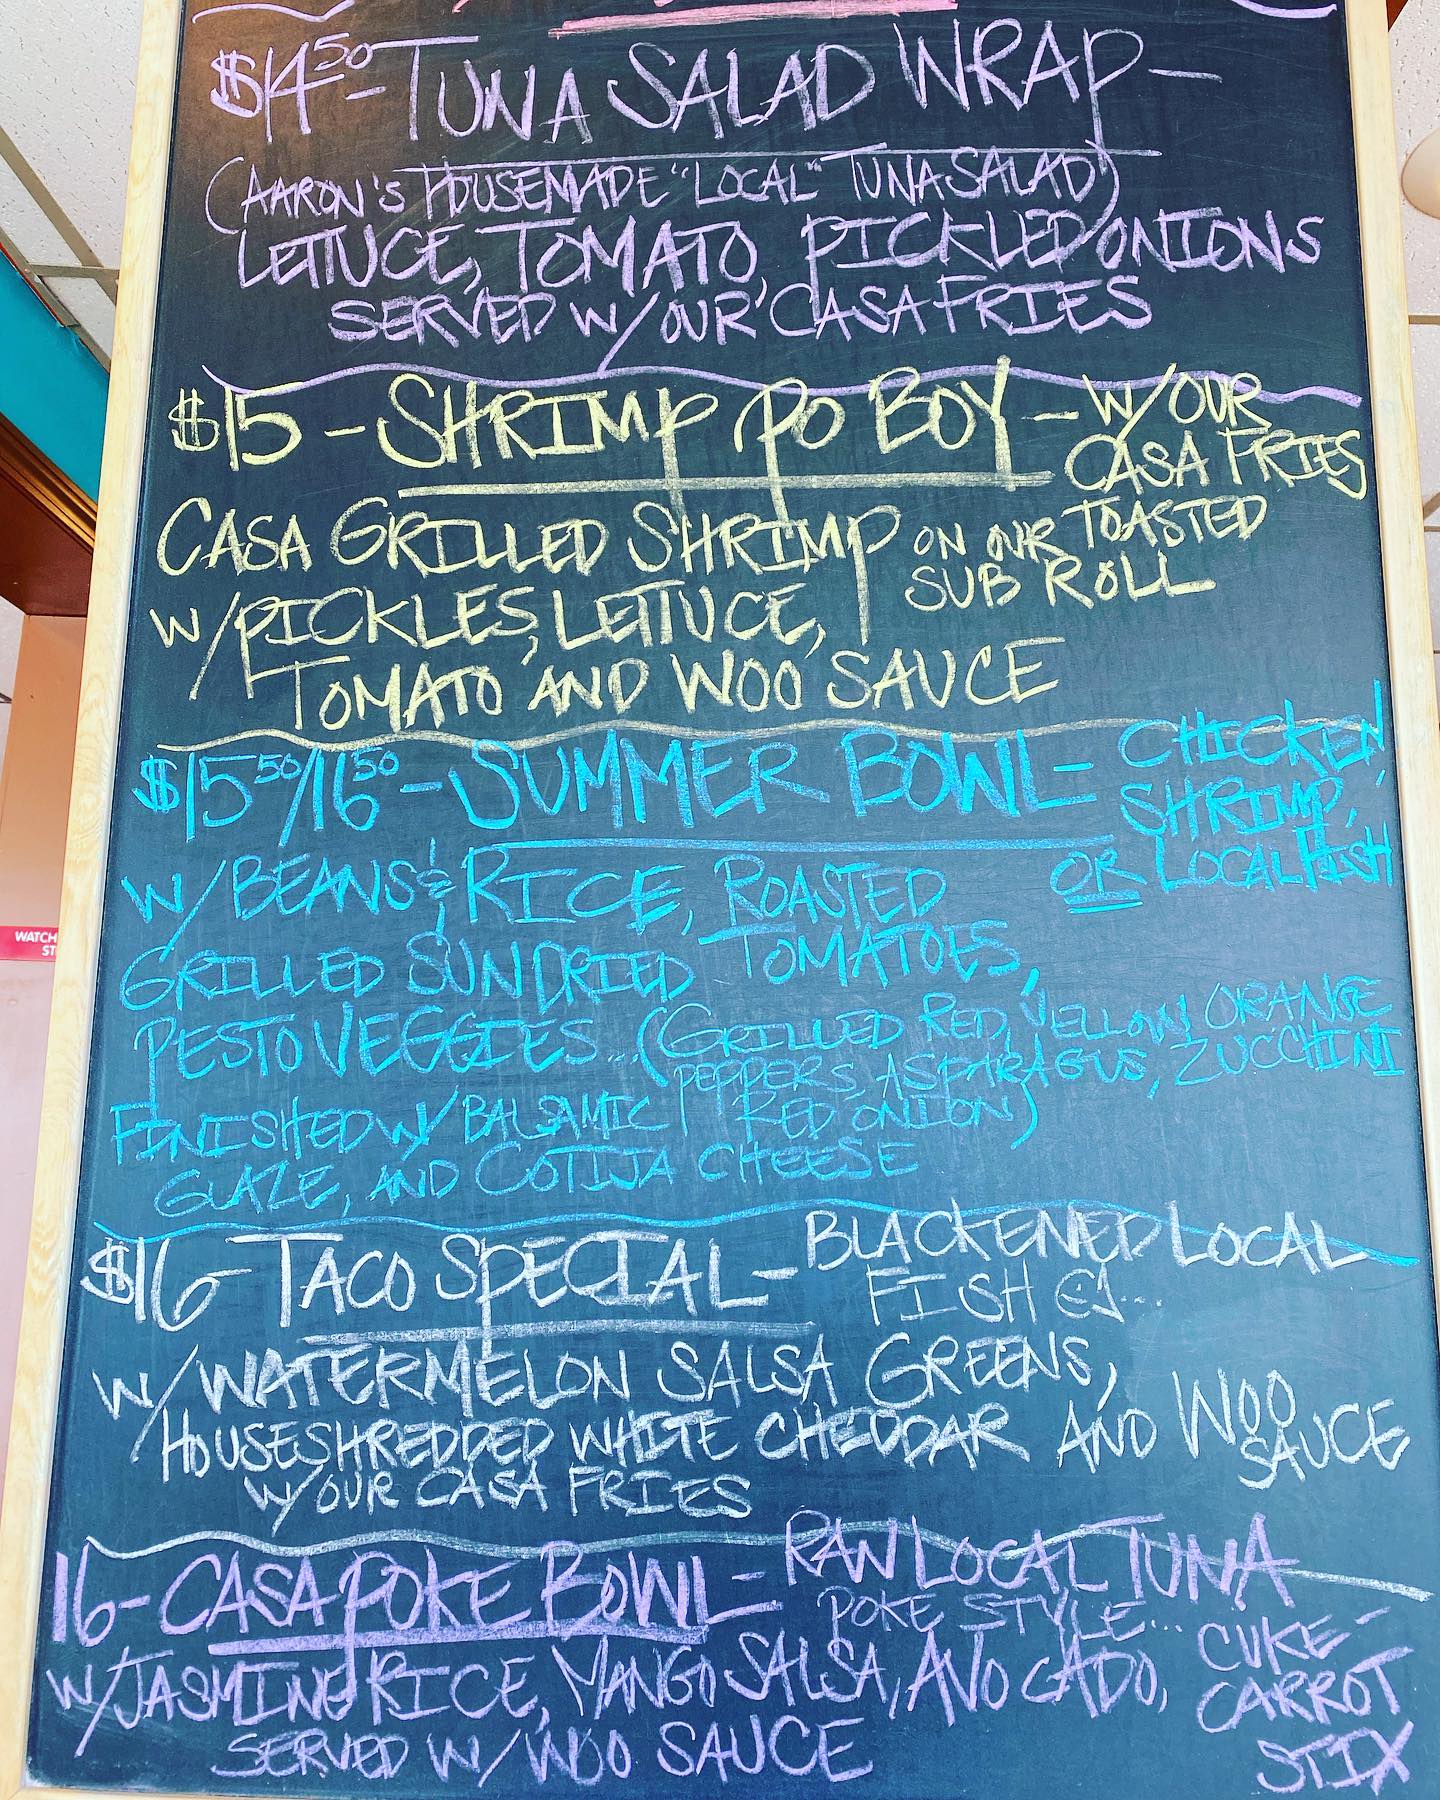 $14.50 - TUNA SALAD WRAP -
(AARON'S HOUSEMADE "LOCAL" TUNA SALAD)
LETTUCE, TOMATO, PICKLED ONIONS
SERVED W/ OUR CASA FRIES
$15 - SHRIMP PO BOY - W/ OUR
CASA FRIES
CASA GRILLED SHRIMP ON OUR TOASTED
SUB ROLL
W/ PICKLES, LETTUCE,
TOMATO AND WOO SAUCE
$15.50/16.50 - SUMMER BOWL - CHICKEN,
SHRIMP,
OR LOCAL FISH
W/ BEANS & RICE, ROASTED
TOMATOES,
GRILLED SUNDRIED
PESTO VEGGIES... (GRILLED RED, YELLOW, ORANGE
PEPPERS, ASPARAGUS, ZUCCHINI
RED ONION)
FINISHED W/ BALSAMIC
GLAZE, AND COTIJA CHEESE
$16 - TACO SPECIAL - BLACKENED LOCAL
FISH
W/ WATERMELON SALSA GREENS,
HOUSESHREDDED WHITE CHEDDAR AND WOO
SAUCE
W/ OUR CASA FRIES
16 - CASA POKE BOWL - RAW LOCAL TUNA
POKE STYLE...
W/ JASMINE RICE, MANGO SALSA, AVOCADO, CUKE -
CARROT
STIX
SERVED W/ WOO SAUCE
WATCH
ST